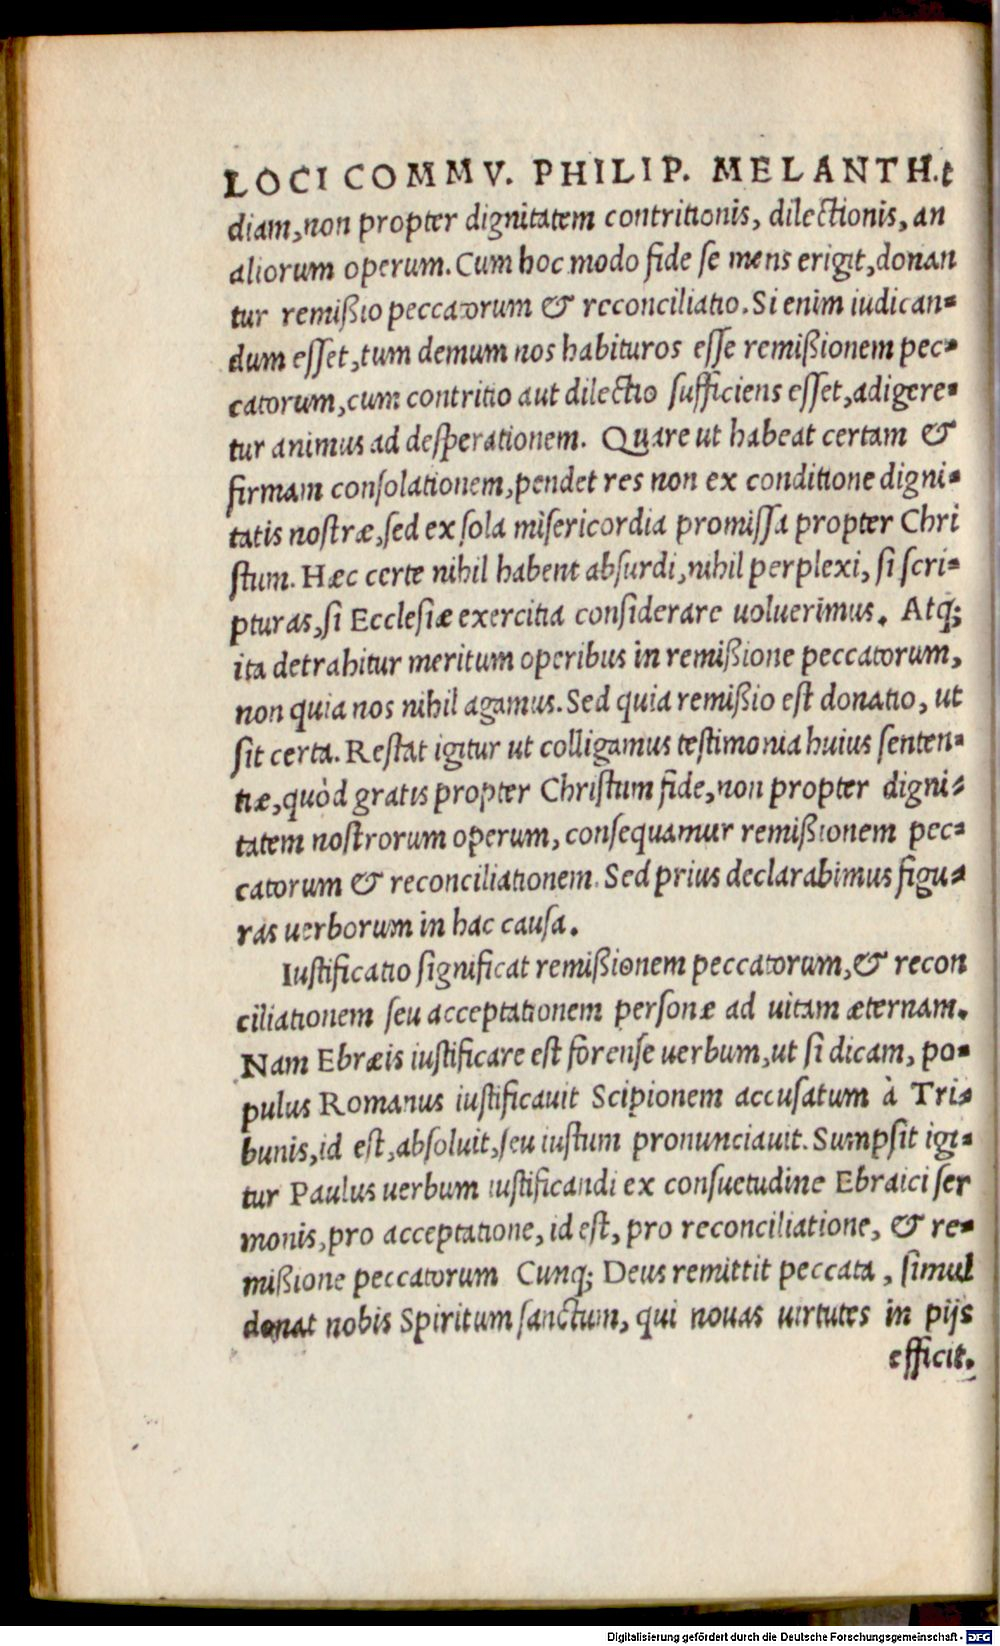 LOCI COMMV. PHILIP. MELANTH.
diam, non propter dignitatem contritionis, dilectionis, an
aliorum operum. Cum hoc modo fide se mens erigit, donan
tur remißio peccatorum & reconciliatio. Si enim iudican-
dum esset, tum demum nos habituros esse remißionem pec-
catorum, cum contritio aut dilectio sufficiens esset, adigere-
tur animus ad desperationem. Quare ut habeat certam &
firmam consolationem, pendet res non ex conditione digni-
tatis nostræ, sed ex sola misericordia promissa propter Chri
stum. Hæc certe nihil habent absurdi, nihil perplexi, si scri-
pturas, si Ecclesiæ exercitia considerare uoluerimus. Atq;
ita detrahitur meritum operibus in remißione peccatorum,
non quia nos nihil agamus. Sed quia remißio est donatio, ut
sit certa. Restat igitur ut colligamus testimonia huius senten-
tiæ, quòd gratis propter Christum fide, non propter digni-
tatem nostrorum operum, consequamur remißionem pec-
catorum & reconciliationem. Sed prius declarabimus figu-
ras uerborum in hac causa.
Iustificatio significat remißionem peccatorum, & recon
ciliationem seu acceptationem personæ ad uitam æternam.
Nam Ebræis iustificare est forense uerbum, ut si dicam, po-
pulus Romanus iustificauit Scipionem accusatum à Tri-
bunis, id est, absoluit, seu iustum pronunciauit. Sumpsit igi-
tur Paulus uerbum iustificandi ex consuetudine Ebraici ser
monis, pro acceptatione, id est, pro reconciliatione, & re-
mißione peccatorum Cunq; Deus remittit peccata, simul
donat nobis Spiritum sanctum, qui nouas uirtutes in pijs
efficit.
Digitalisierung gefördert durch die Deutsche Forschungsgemeinschaft - DFG